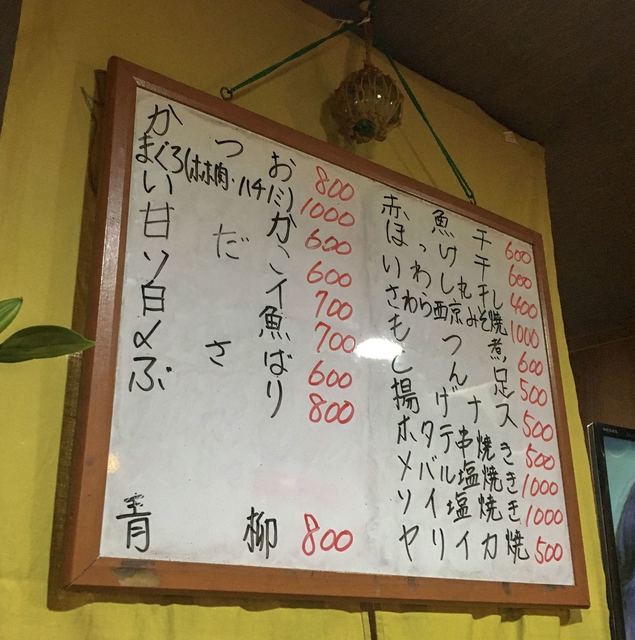 かつお 800
まぐろ(ホホ肉・ハチミ) 1000
いか 600
甘だい 600
ソイ 700
白魚 700
〆さば 600
ぶり 800
青柳 800
赤魚干 600
ほっけ干 600
いわし丸干し 400
さわら西京みそ焼 1000
もつ煮 600
とん足 500
揚げナス 500
ホタテ串焼き 500
メバル塩焼き 1000
ソイ塩焼き 1000
ヤリイカ焼 500